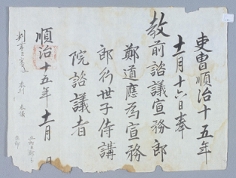 吏曹順治十五年
十一月十六日奉
敎前諮議宣務郎
鄭道應爲宣務
郎行世子侍講
院諮議者
順治十五年十一月 日